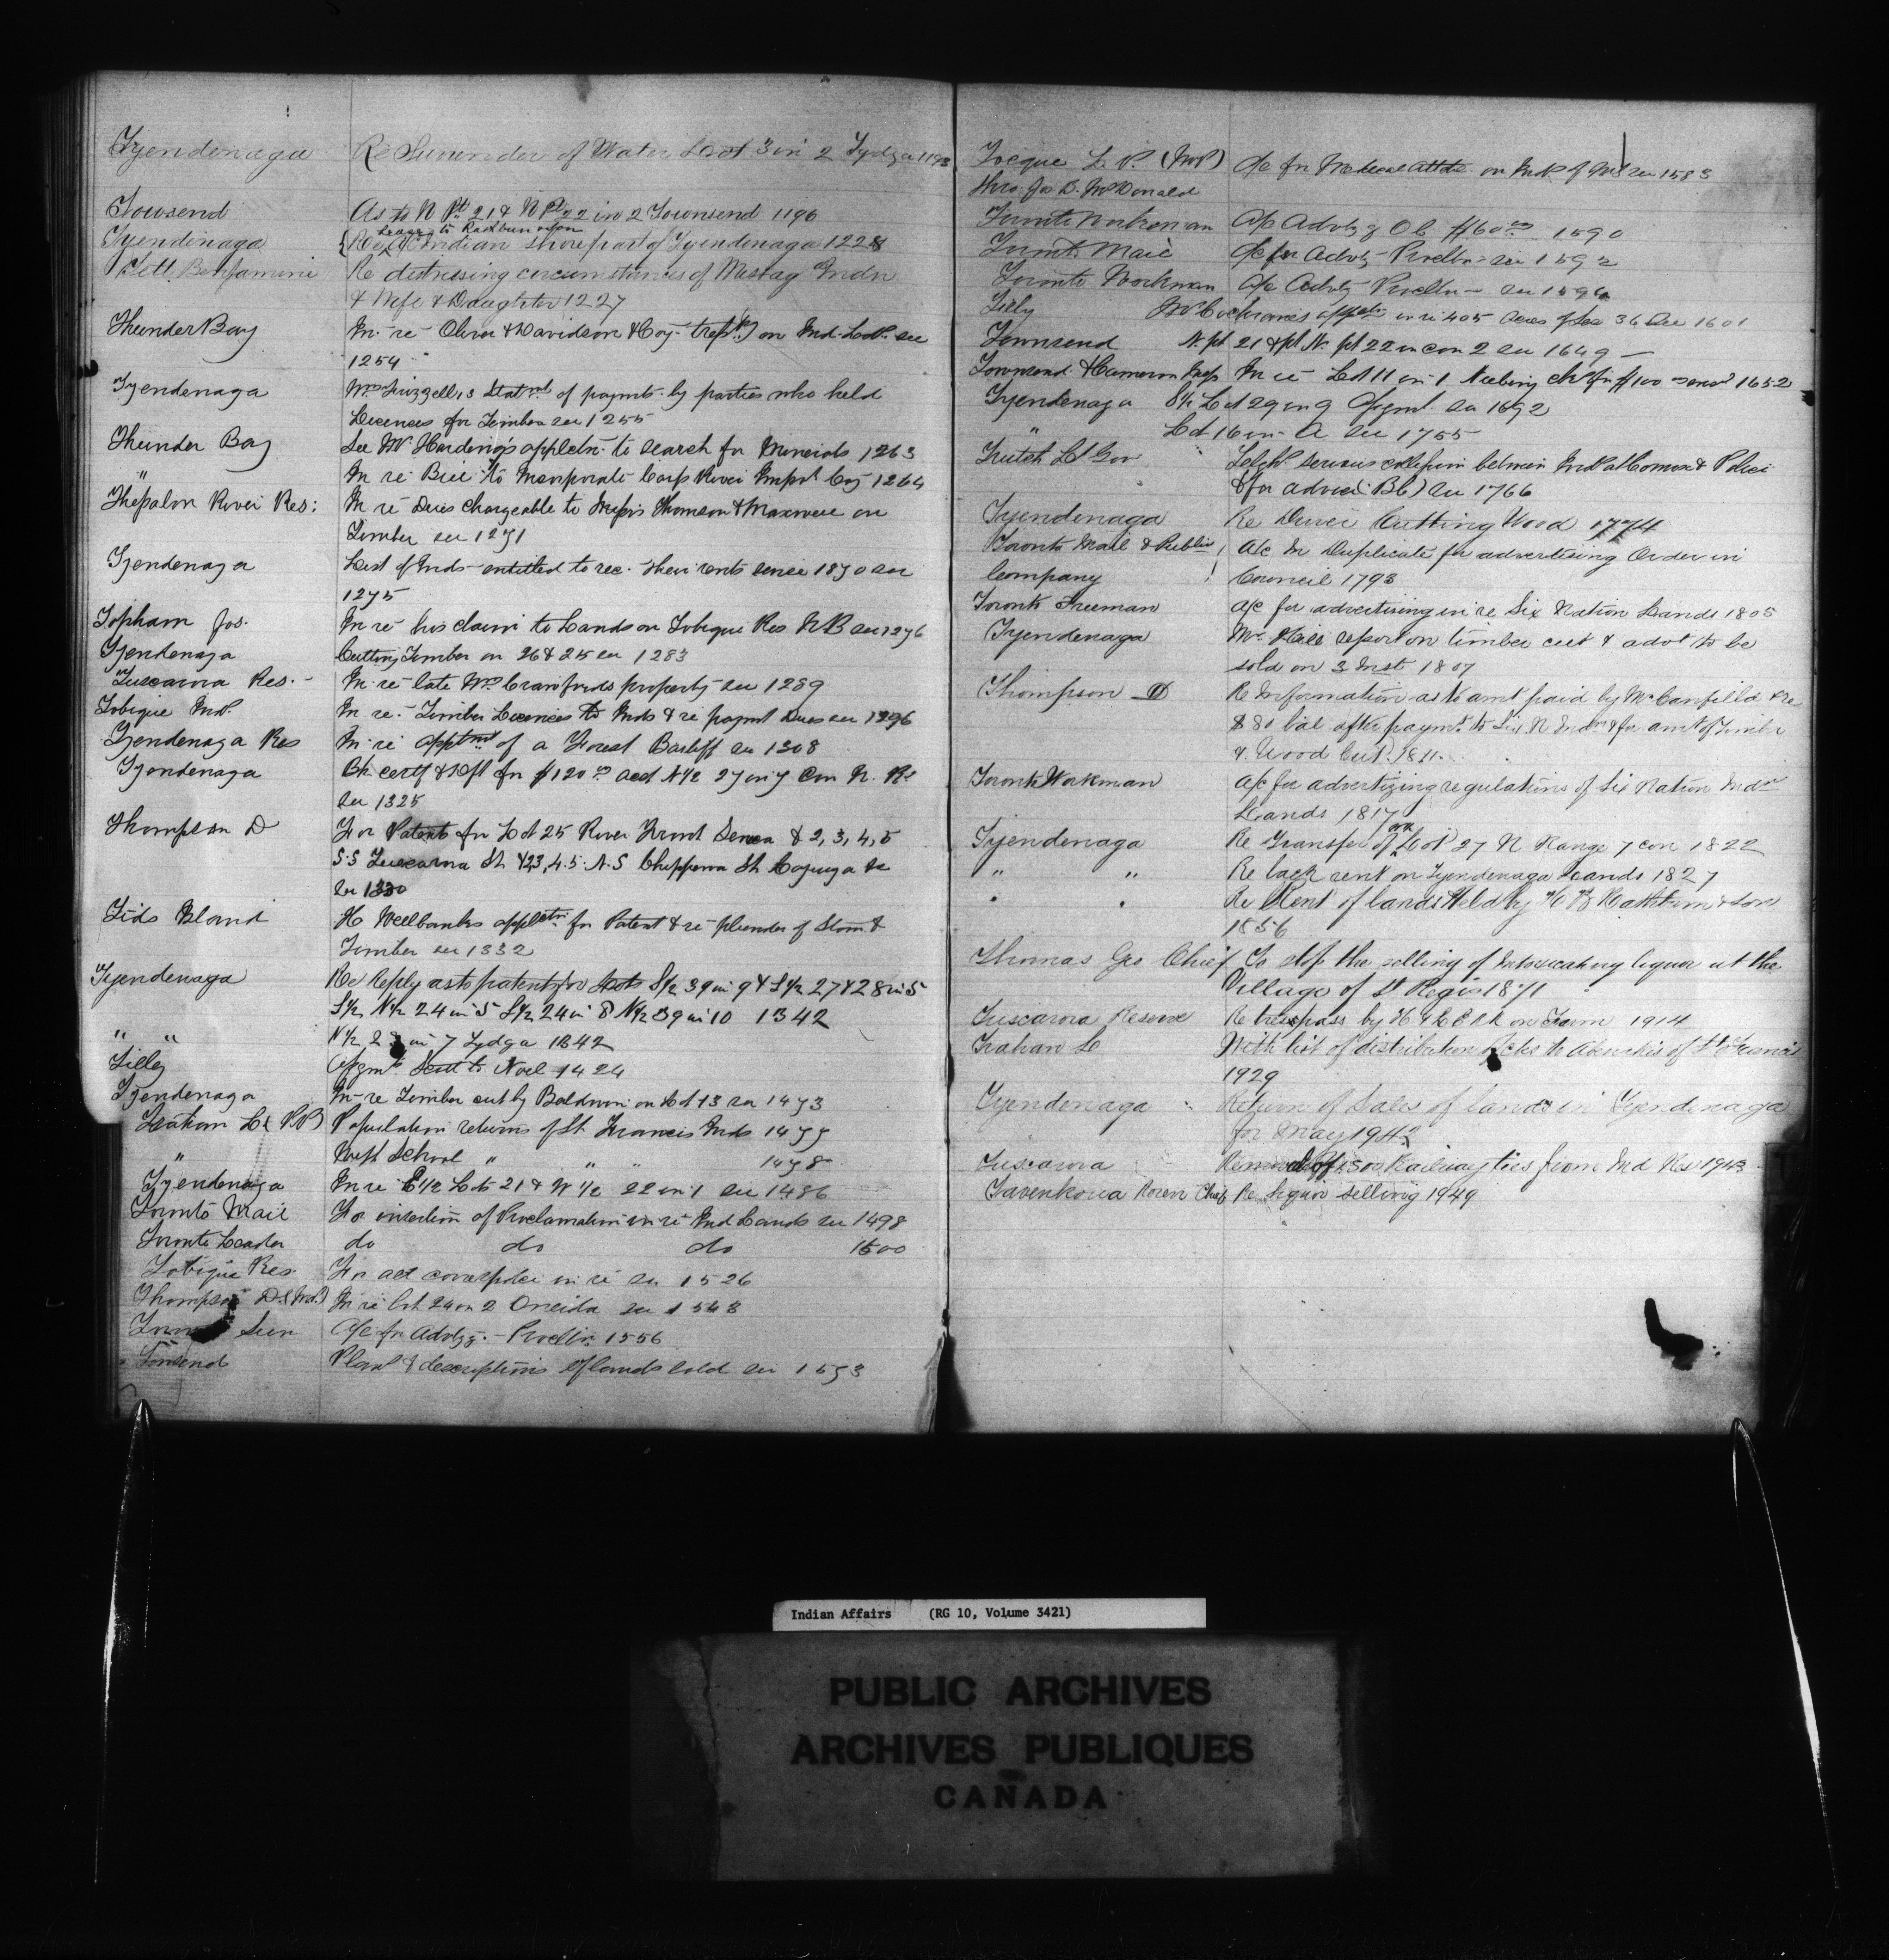 Tyendenaga Re Surrender of Water Lot 3 in 2 Tydga 1193
Towsend As to N Pt 21 & N Pt 22 in 2 Townsend 1196
Lease to Rathbun & Son
Tyendinaga Re Indian shore part of Tyendenaga 1228
Tett Benjamin Re distressing circumstances of Indn
& Wife & Daughter 1227
Thunder Bay In re Oliver & Davidson & Coy. on Ind. Lds. see
1254
Tyendenaga Mr Frizzell's Statmt of paymts by parties who held
Licences for Timber see 1255
Thunder Bay See Mr Harding's applctn to search for Minerals 1263
" In re Bill to Incorporate Carp River Impvt Coy 1264
Thessalon River Res: In re Dues chargeable to Messrs Thomson & Maxwell on
Timber see 1271
Tyendenaga List of Inds entitled to rec. their rents since 1870 see
1275
Topham Jos. In re his claim to Lands on Tobique Res N.B see 1276
Tyendenaga Cutting Timber on 26 & 25 see 1283
Tuscarora Res. In re late Wm Crawfords property see 1289
Tobique Inds. In re. Timber Licences to Inds & re paymt Dues see 1296
Tyendenaga Res In re apptmt of a Forest Bailiff see 1308
Tyendenaga Ck certf & Dft for $120 00 acct N 1/2 27 in 7 Con N. R.
see 1325
Thompson D For Patents for Lot 25 River Front Seneca & 2, 3, 4, 5
S.S Tuscarora St & 2,3,4.5. N.S Chippewa St Cayuga &c
see 1330
Tids Island H Wellbanks applctn for Patent & re plunder of Stone &
Timber see 1332
Tyendenaga Re Reply as to patent for S1/2 39 in 9 & S1/2 27 & 28 in 5
S1/2 N1/2 24 in 5 S1/2 24 in 8 N1/2 39 in 10 1342
" " N1/2 in 7 Tydga 1342
Tilley Asgmt. Scott to Noel 1424
Tyendenaga In re Timber cut by Baldwin on Lot 13 see 1473
Trahan L. (P.P) Population returns of St Francis Inds 1477
" School " " " 1478
Tyendenaga In re E 1/2 Lots 21 & W 1/2 22 in 1 see 1486
Toronto Mail For insertion of Proclamation in re Ind Lands see 1498
Toronto Leader do do do 1500
Tobique Res. For all correspdce in re see 1526
Thompson D. In re Lot 24 on 2 Oneida see 1543
Toronto Sun A/c for Advtzg. - Procltn 1556
Tonsend Plans & descriptions of lands sold see 1573
Tocque L. P. (M.P.) A/c for Medical Attdce on Inds of see 1583
thro: Jos D. McDonald
Toronto Workman A/c Advtzg O C $60 00 1590
Toronto Mail A/c for Advtg Procltn see 1592
Toronto Workman A/c Advtg Procltn - see 1594
Tilly Cochrane's in re 405 Acres see 1601
Townsend N. pt 21 & pt N. pt 22 in con 2 see 1649
Townsend & Cameron In re Lot 11 in 1 Neebing chq for $100 1652
Tyendenaga S1/2 Lot 29 in 9 Asgmt. see 1692
" Lot 16 in A see 1755
Trutch Lt Gov serious collision between Inds at Comox & Police
& for advice B.C) see 1766
Tyendenaga Re Cutting Wood 1774
Toronto Mail & Publis A/c in Duplicate for advertising Order in
Company Council 1793
Toronto Freeman A/c for advertising in re Six Nation Lands 1805
Tyendenaga Mr. Hall report on timber cut & advt to be
sold on 3 Inst 1807
Thompson D Re Information as to amt paid by Mr Canfield & re
$80 bal after paymt. to Six N Indns & for amt of Timber
& Wood Cut. 1811
Toronto Workman A/c for advertizing regulations of Six Nation Indn
Lands 1817
Tyendenaga Re Transfer of Lot 27 N Range 7 con 1822
" " Re back rent on Tyendenaga Lands 1827
" " Re Rent of lands held by Rathbun & Son
1856
Thomas Geo Chief To stop the selling of Intoxicating liquor at the
Village of St Regis 1871
Tuscarora Reserve Re tresspass by on Farm 1914
Trahan L With list of distribution to Abenakis of St Francis
1929
Tyendenaga Return of Sales of lands in Tyendenaga
for May 1942
Tuscarora Removal of 1500 Railway ties from Ind Res 1943
Tavenkona Rosen Chief Re liquor selling 1949
Indian Affairs (RG 10, Volume 3421)
PUBLIC ARCHIVES
ARCHIVES PUBLIQUES
CANADA